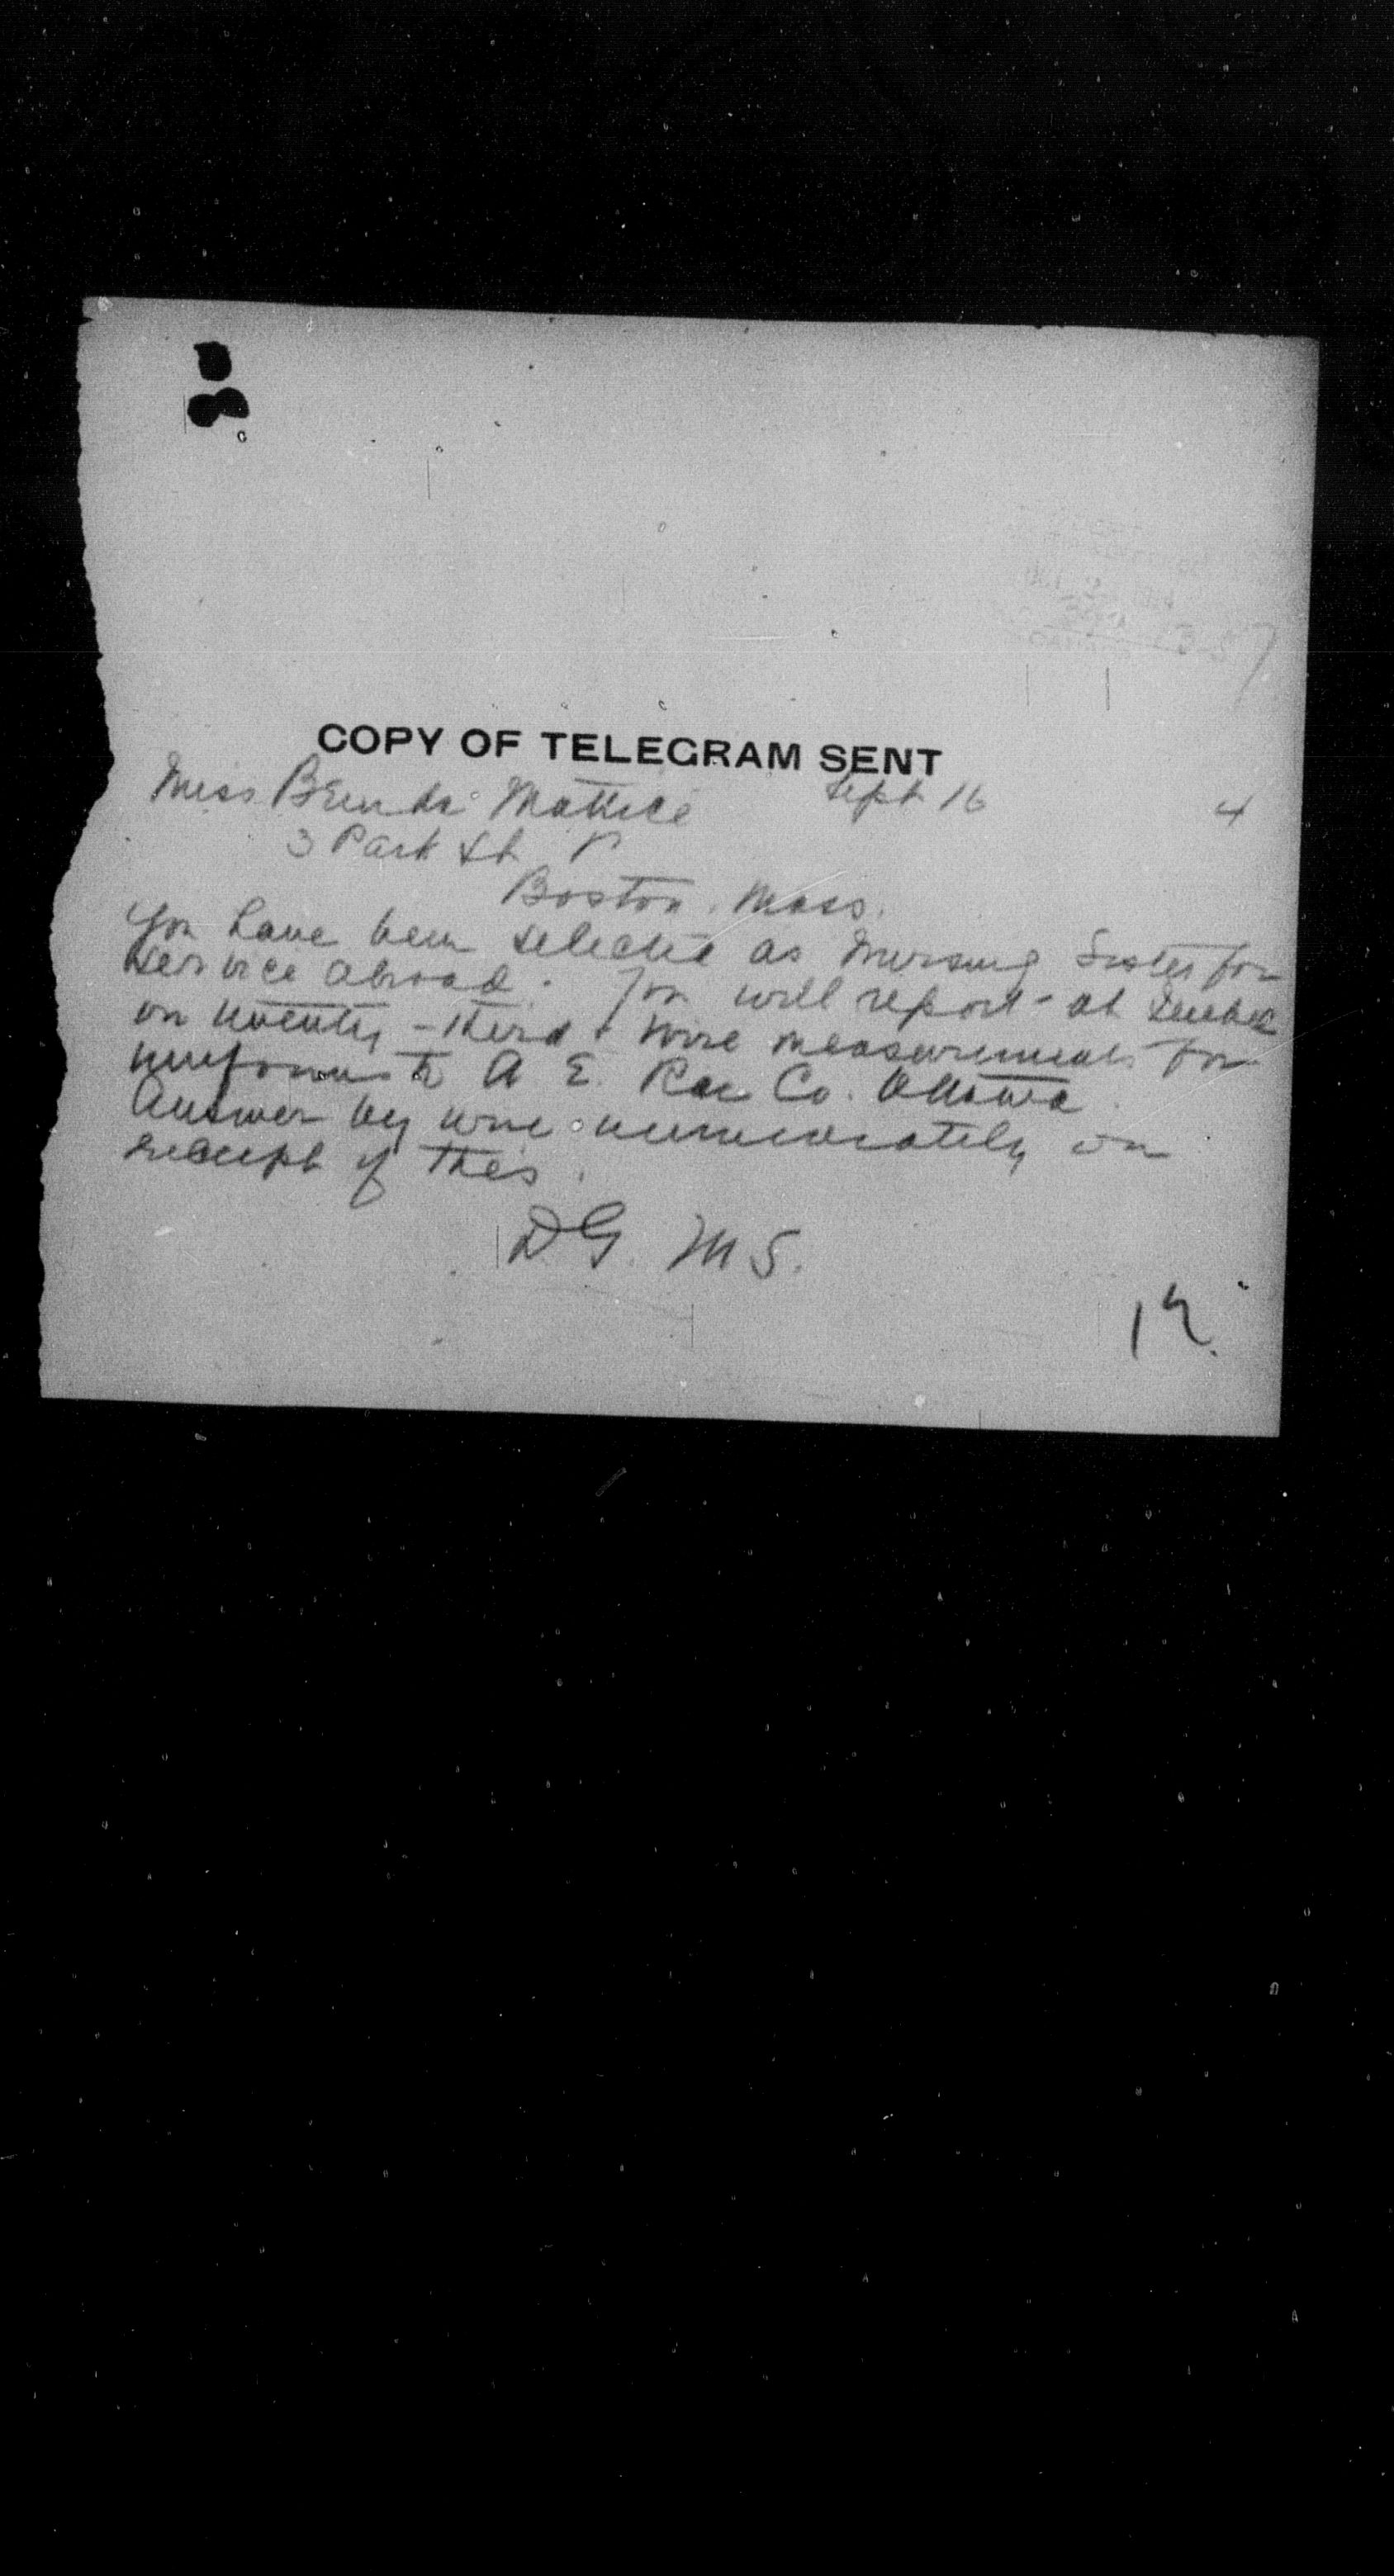 COPY OF TELEGRAM SENT
Miss Brenda Mattice Sept 16 4
3 Park St
Boston. Mass.
You have been selected as Nursing Sister for
service abroad. You will report at Quebec
on twenty-third & wire measurements for
uniforms to A E. Rae Co. Ottawa
Answer by wire immediately on
receipt of this.
D G. M S.